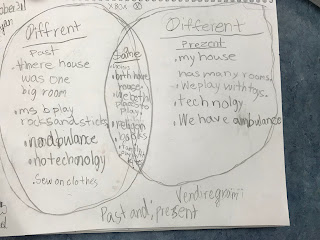 Diffrent
past
there house
was one
big room
play
rocks and sticks
no adbulance
no techonolgy
Sew on clothes
Same
both have
house.
we both
places to
play
religon
Different
Prezent
my house
has many rooms.
We play with toys.
technolgy
We have ambulance
Past and present